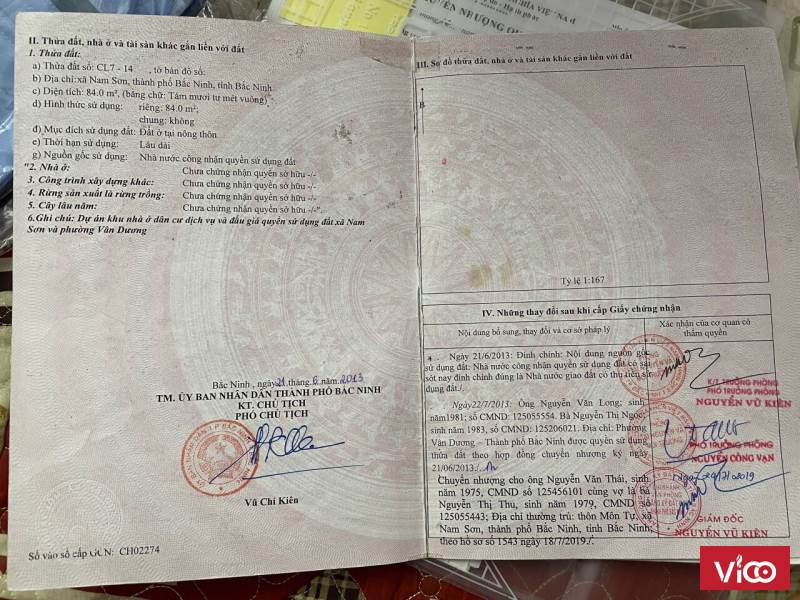 II. Thửa đất, nhà ở và tài sản khác gắn liền với đất
1. Thửa đất:
a) Thửa đất số: CL7 - 14 , tờ bản đồ số:
b) Địa chỉ: xã Nam Sơn, thành phố Bắc Ninh, tỉnh Bắc Ninh
c) Diện tích: 84.0 m², (bằng chữ: Tám mươi tư mét vuông)
d) Hình thức sử dụng: riêng: 84.0 m²;
chung: không
đ) Mục đích sử dụng đất: Đất ở tại nông thôn
e) Thời hạn sử dụng: Lâu dài
g) Nguồn gốc sử dụng: Nhà nước công nhận quyền sử dụng đất
"2. Nhà ở: Chưa chứng nhận quyền sở hữu -/-
3. Công trình xây dựng khác: Chưa chứng nhận quyền sở hữu -/-
4. Rừng sản xuất là rừng trồng: Chưa chứng nhận quyền sở hữu -/-
5. Cây lâu năm: Chưa chứng nhận quyền sở hữu -/-"
6.Ghi chú: Dự án khu nhà ở dân cư dịch vụ và đấu giá quyền sử dụng đất xã Nam
Sơn và phường Vân Dương
Bắc Ninh , ngày 21 tháng 6 năm 2013
TM. ỦY BAN NHÂN DÂN THÀNH PHỐ BẮC NINH
KT. CHỦ TỊCH
PHÓ CHỦ TỊCH
Vũ Chí Kiên
Số vào sổ cấp GCN: CH02274
III. Sơ đồ thửa đất, nhà ở và tài sản khác gắn liền với đất
B
Tỷ lệ 1:167
IV. Những thay đổi sau khi cấp Giấy chứng nhận
Nội dung bổ sung, thay đổi và cơ sở pháp lý
Xác nhận của cơ quan có
thẩm quyền
Ngày 21/6/2013: Đính chính: Nội dung nguồn gốc
sử dụng đất: Nhà nước công nhận quyền sử dụng đất có sai
sót nay đính chính đúng là Nhà nước giao đất có thu tiền sử
dụng đất./.
K/T. TRƯỞNG PHÒNG
PHÓ TRƯỞNG PHÒNG
NGUYỄN VŨ KIÊN
Ngày22/7/2013: Ông Nguyễn Văn Long; sinh
năm1981; số CMND: 125055554. Bà Nguyễn Thị Ngọc;
sinh năm 1983, số CMND: 125206021. Địa chỉ: Phường
Vân Dương – Thành phố Bắc Ninh được quyền sử dụng
thửa đất theo hợp đồng chuyển nhượng ký ngày
21/06/2013./.
PHÓ TRƯỞNG PHÒNG
NGUYỄN CÔNG VẠN
Chuyển nhượng cho ông Nguyễn Văn Thái, sinh
năm 1975, CMND số 125456101 cùng vợ là bà
Nguyễn Thị Thu, sinh năm 1979, CMND số
125055443; Địa chỉ thường trú: thôn Môn Tự, xã
Nam Sơn, thành phố Bắc Ninh, tỉnh Bắc Ninh;
theo hồ sơ số 1543 ngày 18/7/2019./.
GIÁM ĐỐC
NGUYỄN VŨ KIÊN
Vico